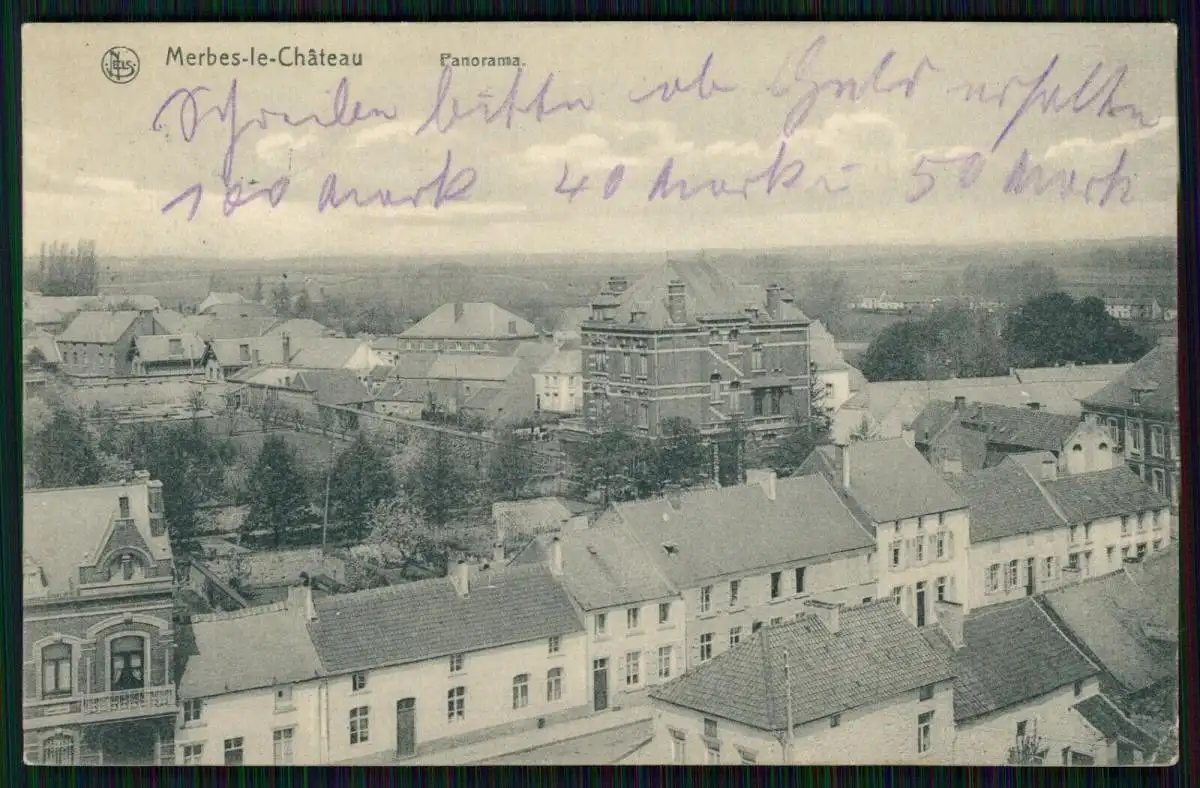 NELS
Merbes-le-Château Panorama.
Schreiben bitte ob Geld erhalten
100 Mark 40 Mark u 50 Mark